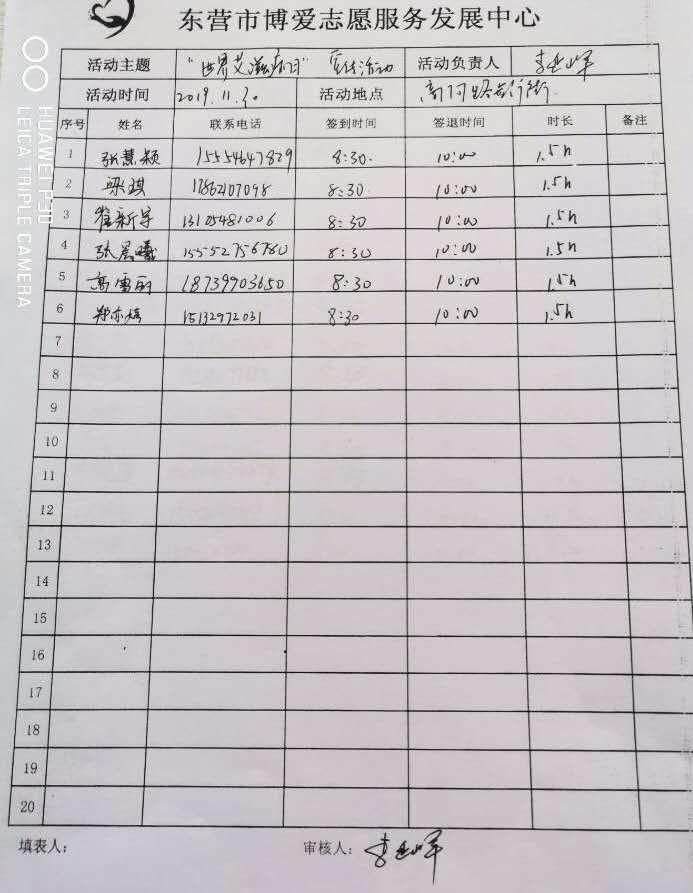 东营市博爱志愿服务发展中心
活动主题 "世界艾滋病日" 宣传活动 活动负责人
活动时间 2019.11.30 活动地点
序号 姓名 联系电话 签到时间 签退时间 时长 备注
1 张慧颖 15554647829 8:30 10:00 1.5h
2 梁琪 17862107098 8:30 10:00 1.5h
3 崔新宇 13105481006 8:30 10:00 1.5h
4 张晨曦 15552756780 8:30 10:00 1.5h
5 高雪丽 18739903650 8:30 10:00 1.5h
6 15132972031 8:30 10:00 1.5h
7
8
9
10
11
12
13
14
15
16
17
18
19
20
填表人: 审核人:
HUAWEI P30
LEICA TRIPLE CAMERA